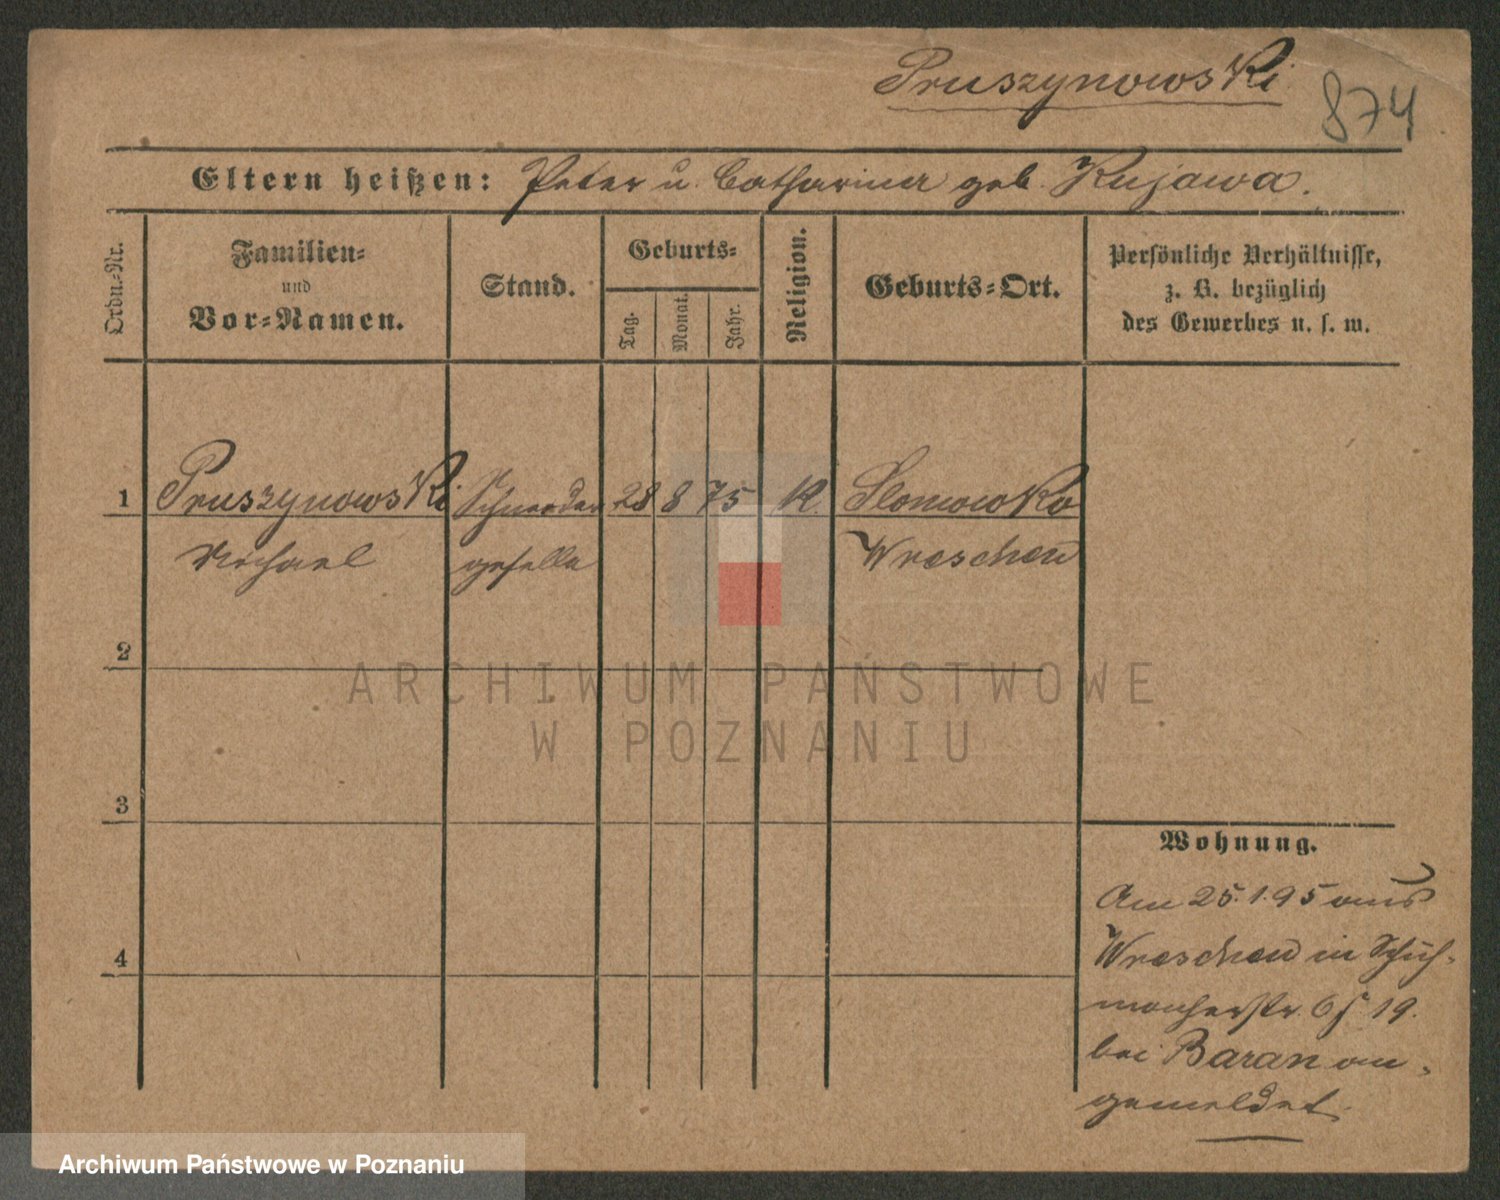 Pruszynowski
874
Eltern heißen: Peter u. Catharina geb. Kujawa.
Ordn.-Nr.
Familien-
und
Vor-Namen.
Stand.
Geburts-
Tag.
Monat.
Jahr.
Religion.
Geburts-Ort.
Persönliche Verhältnisse,
z. B. bezüglich
des Gewerbes u. s. w.
1 Pruszynowski Schneider 28 8 75 K. Slomowko
Michael geselle Wreschen
2
3
4
Wohnung.
Am 25.1.95 aus
Wreschen in Schuh-
macherstr. 19.
bei Baran an-
gemeldet.
ARCHIWUM PAŃSTWOWE
W POZNANIU
Archiwum Państwowe w Poznaniu